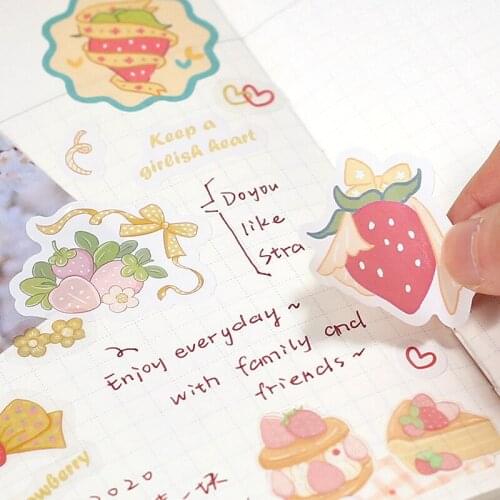 Keep a
girlish heart
Do you
like
Stra
Enjoy everyday~
with family and
friends~
2020